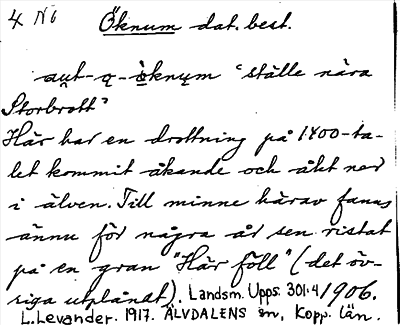 4 N6 Öknum dat. best.
au̯t-ą-ö̀knųm "ställe nära
Storbrott"
Här har en drottning på 1400-ta-
let kommit åkande och åkt ned
i älven. Till minne härav fanns
ännu för några år sen ristat
på en gran "Här föll" (det öv-
riga utplånat). Landsm. Upps. 301:4 1906.
L. Levander. 1917. ÄLVDALENS sn, Kopp. län.